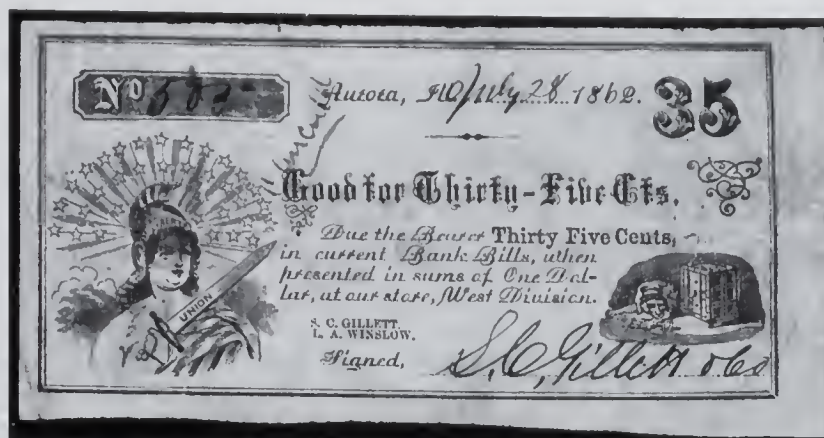 No
Aurora, Ill., July 28 1862.
35
Good for Thirty-Five Cts.
Due the Bearer Thirty Five Cents,
in current Bank Bills, when
presented in sums of One Dol-
lar, at our store, West Division.
UNION
S. C. GILLETT.
L. A. WINSLOW.
Signed, S. C. Gillett & Co